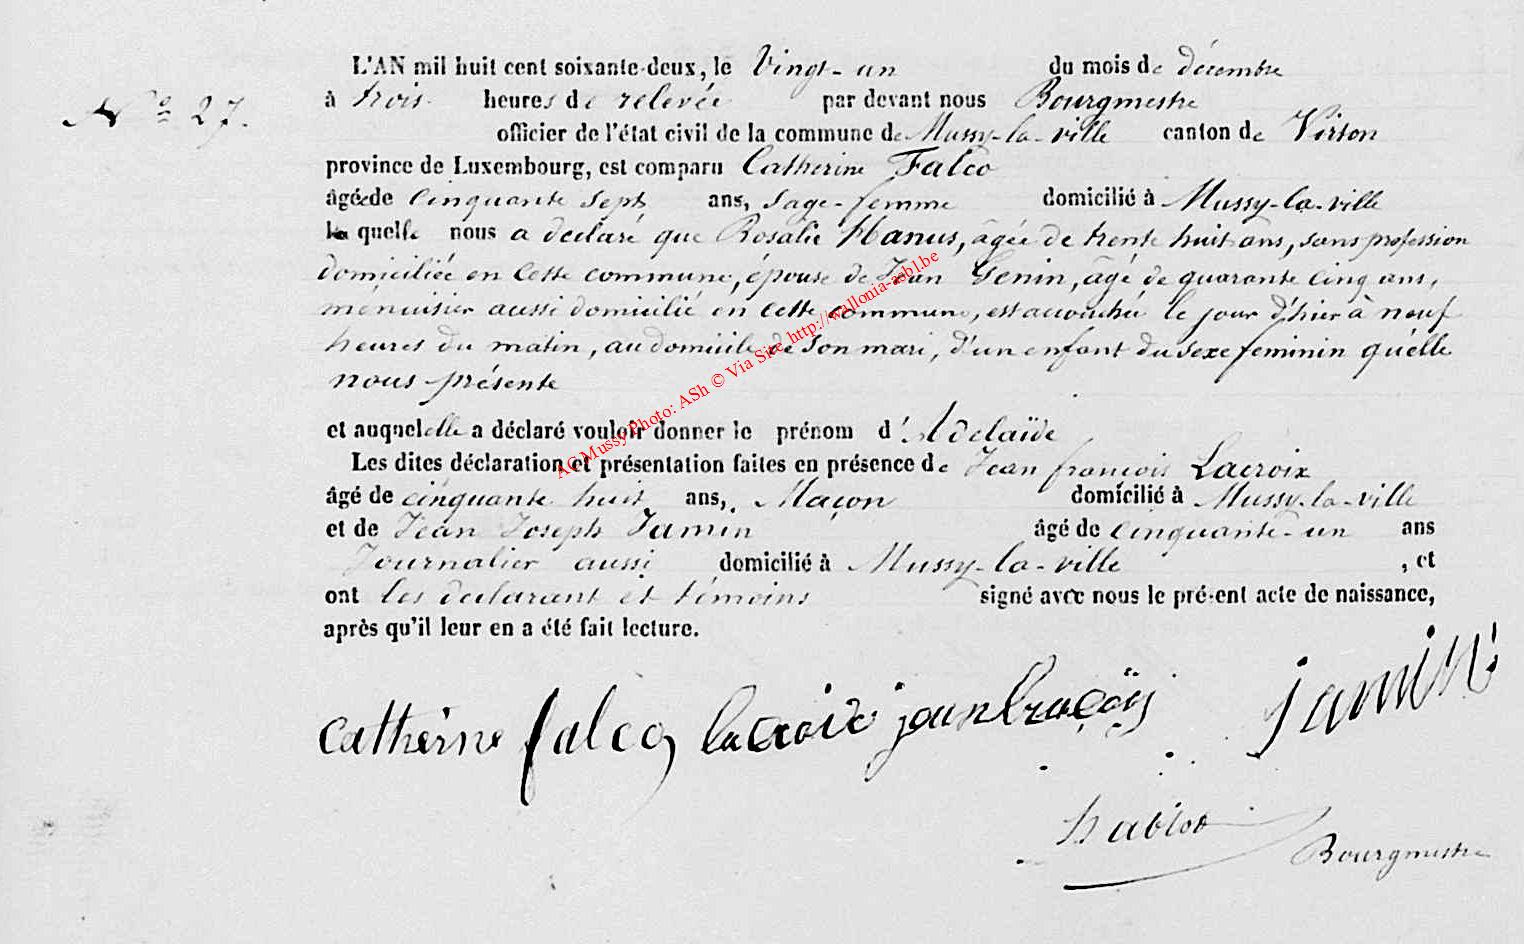 L'AN mil huit cent soixante-deux, le Vingt-un du mois de décembre
N° 27. à trois heures de relevée par devant nous Bourgmestre
officier de l'état civil de la commune de Mussy-la-ville canton de Virton
province de Luxembourg, est comparu Catherine Falco
âgée de cinquante sept ans, sage-femme domicilié à Mussy-la-ville
laquelle nous a declaré que Rosalie Hanus, âgée de trente huit ans, sans profession
domiciliée en cette commune, épouse de Jean Genin, âgé de quarante cinq ans,
ménuisier aussi domicilié en cette commune, est accouchée le jour d'hier à neuf
heures du matin, au domicile de son mari, d'un enfant du sexe feminin qu'elle
nous présente
et auquel elle a déclaré vouloir donner le prénom d'Adelaïde
Les dites déclaration et présentation faites en présence de Jean françois Lacroix
âgé de cinquante huit ans, Maçon domicilié à Mussy-la-ville
et de Jean Joseph Jamin âgé de cinquante-un ans
Journalier aussi domicilié à Mussy-la-ville , et
ont les declarant et témoins signé avec nous le présent acte de naissance,
après qu'il leur en a été fait lecture.
Cathèrine falco lacroix jean jamin
hablot
Bourgmestre
AC Mussy Photo: ASh © Via Site http://wallonia-asbl.be